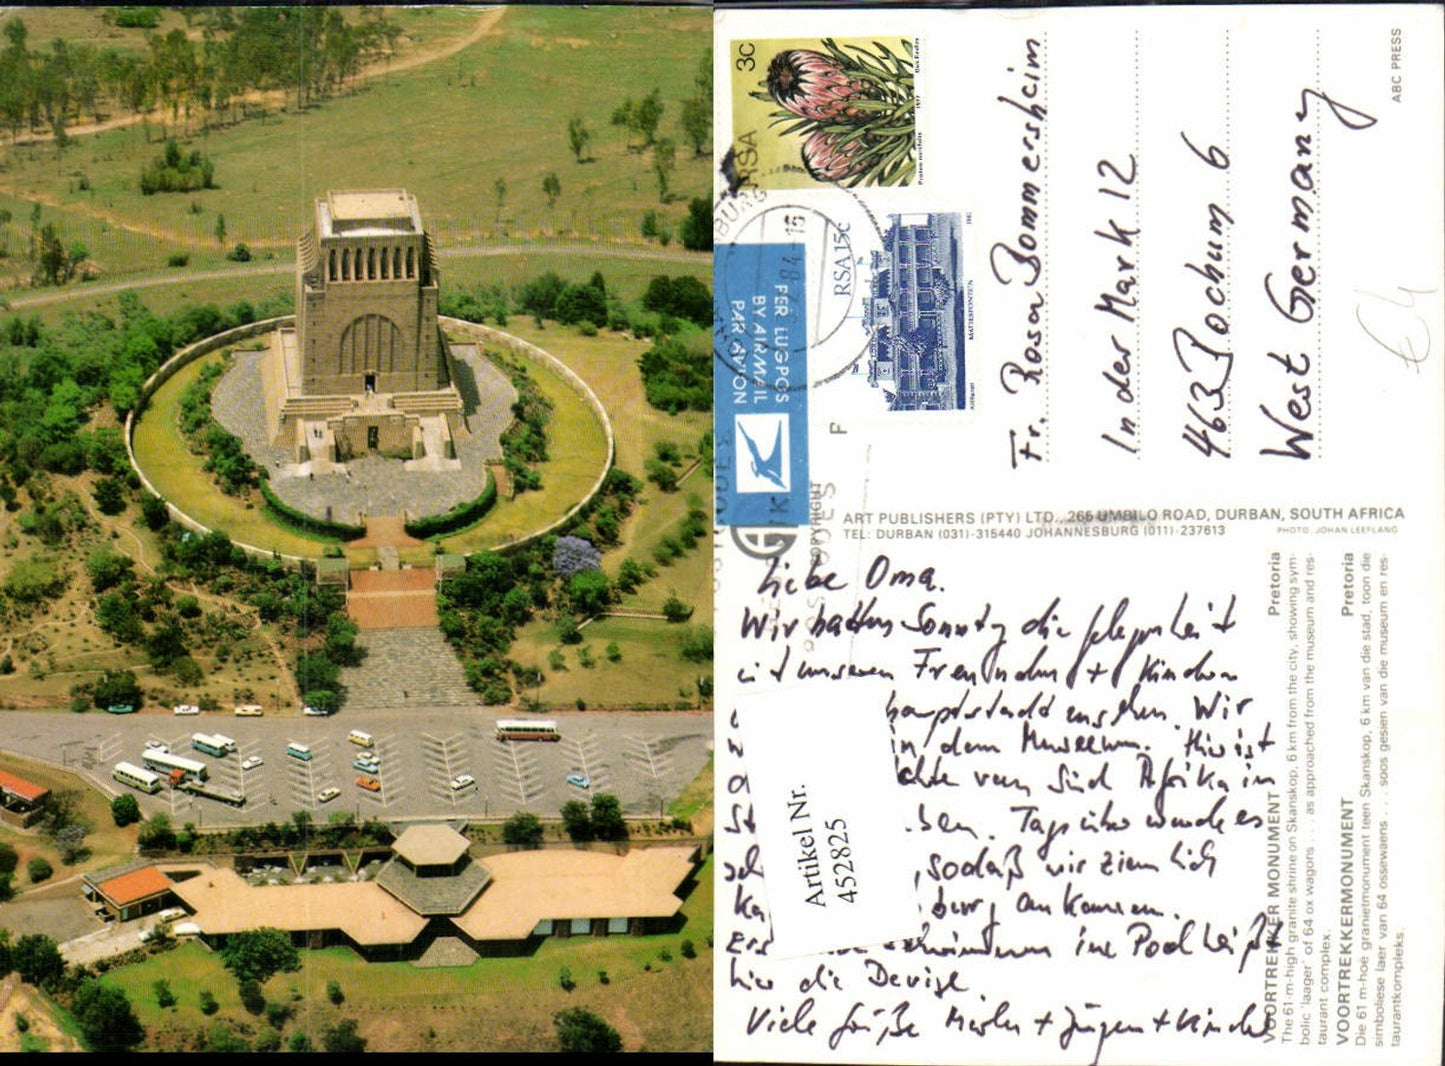 3c
RSA
Protea neriifolia 1977
RSA 15c
MATJESFONTEIN
1982
84 - 16
PER LUGPOS
BY AIRMAIL
PAR AVION
Fr. Rosa Bommersheim
In der Mark 12
463 Bochum 6
West Germany
€ 4
ABC PRESS
ART PUBLISHERS (PTY) LTD., 266 UMBILO ROAD, DURBAN, SOUTH AFRICA
TEL: DURBAN (031)-315440 JOHANNESBURG (011)-237613
PHOTO: JOHAN LEEFLANG
COPYRIGHT
Liebe Oma.
Wir hatten Sonntag die Gelegenheit
mit unseren Freunden + Kindern
hauptstadt ansehen. Wir
in dem Museum. Hier ist
chte von Süd Afrika in
ben. Tagsüber wurde es
sodaß wir ziemlich
burg ankamen.
schwimmen im Pool heißt
hier die Devise
Viele Grüße + Jürgen + Kinder
Artikel Nr.
452825
Pretoria
VOORTREKKER MONUMENT
The 61-m-high granite shrine on Skanskop, 6 km from the city, showing sym-
bolic 'laager' of 64 ox wagons . . . as approached from the museum and res-
taurant complex.
Pretoria
VOORTREKKERMONUMENT
Die 61 m-hoë granietmonument teen Skanskop, 6 km van die stad, toon die
simboliese laer van 64 ossewaens . . . soos gesien van die museum en res-
taurantkompleks.